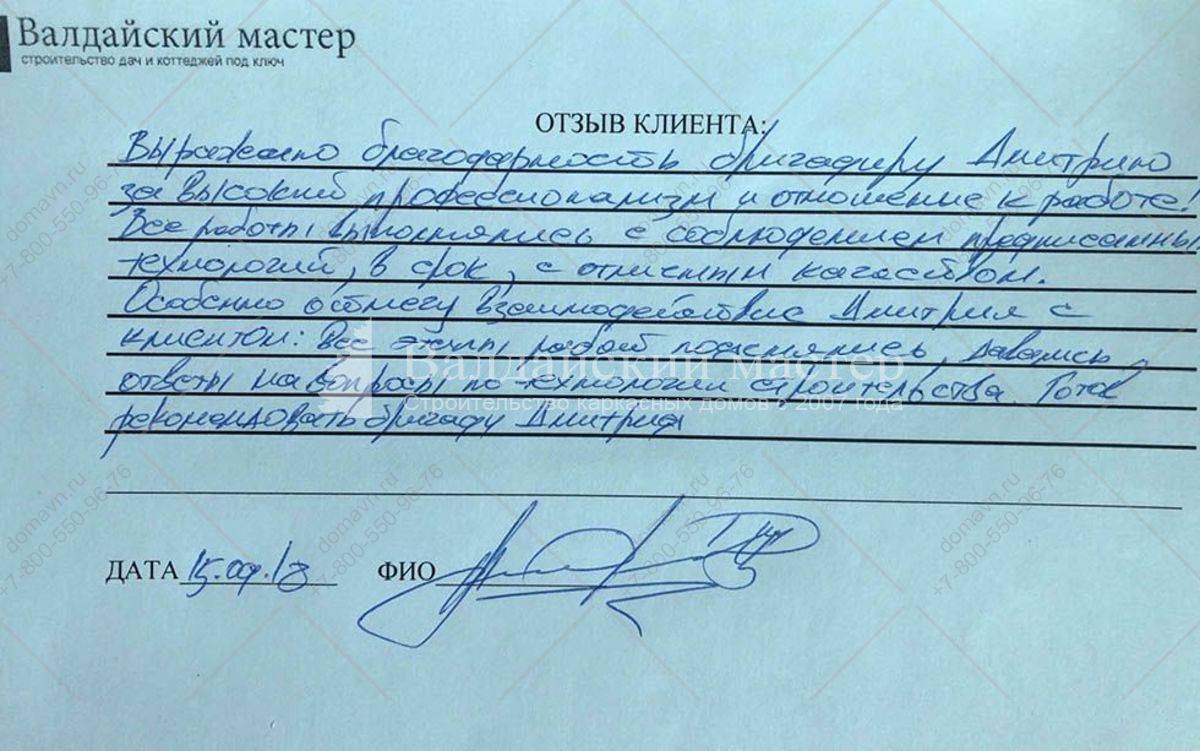 Валдайский мастер
строительство дач и коттеджей под ключ
ОТЗЫВ КЛИЕНТА:
Выражаю благодарность бригадиру Дмитрию
за высокий профессионализм и отношение к работе!
Все работы выполнялись с соблюдением предписанных
технологий, в срок, с отличным качеством.
Особенно отмечу взаимодействие Дмитрия с
клиентом: Все этапы работ пояснялись, давались
ответы на вопросы по технологии строительства. Готов
рекомендовать бригаду Дмитрия
Валдайский мастер
Строительство каркасных домов с 2007 года
ДАТА 15.09.18 ФИО
domavn.ru
+7-800-550-96-76